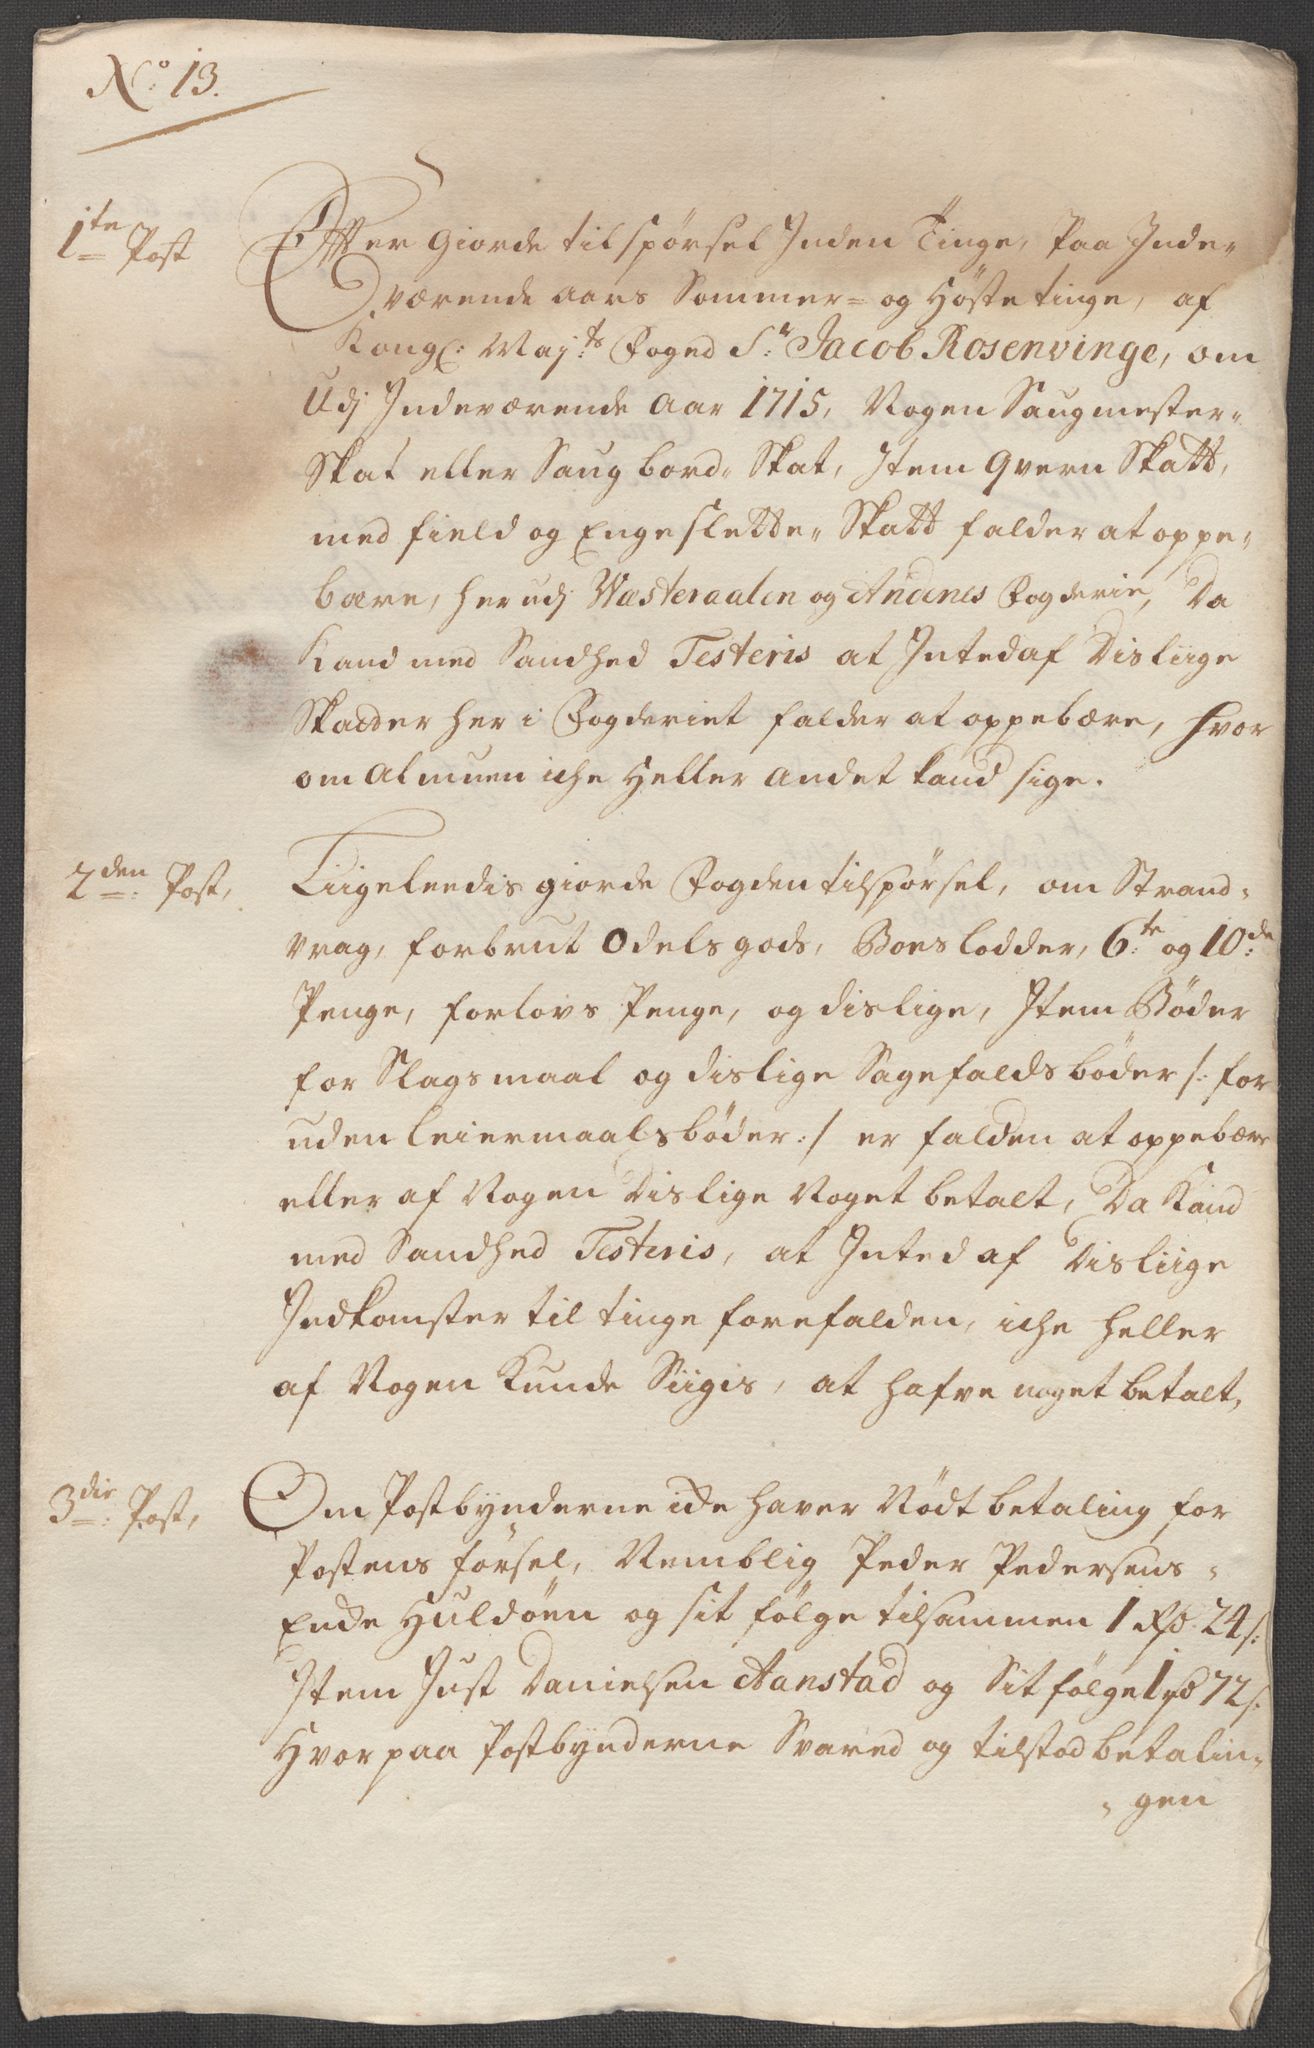 No: 13.
1te Post
Efter giorde tilspörsel Inden Tinge, Paa Inde„
værende aars Sommer= og Höste tinge, af
Kongl: Maj:ts Foged Sr: Jacob Rosenvinge, om
Udj Indeværende Aar 1715, Nogen Saugmester„
Skat eller Saugbord„ Skat, Item Qvern Skatt,
med field og Enge slette„ Skatt falder at oppe„
bære, her udj Wæsteraalen og Andenes Fogderie, Da
Kand med Sandhed Testeris at Inted af Disliige
Skatter her i Fogderiet falder at oppebære, hvor
om Almuen iche Heller andet kand sige.
2den: Post,
Liigeleedis giorde Fogden tilspörsel, om Strand„
vrag, forbrut Odelsgods, Boeslodder, 6:te og 10:de
Penge, forlovs Penge, og dislige, Item Bøder
for Slagsmaal og dislige Sagefaldsbøder /: for
uden leiermaalsbøder :/ er falden at oppebære
eller af Nogen Dislige Noget betalt, Da Kand
med Sandhed Testeris, at Inted af Disliige
Indkomster til tinge forefalden, iche heller
af Nogen Kunde Siigis, at hafve noget betalt,
3die: Post,
Om Postbynderne icke haver Nödt betaling for
Postens försel, Nemblig Peder Pedersens„
Ende Huldöen og sit følge tilsammen 1 Rd 24 s:
Item Just Danielsen Aanstad og Sit følge 1 rd 72 s:
Hvorpaa Postbynderne Svared og tilstod betalin„
„gen